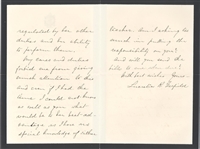 regulated by her other
duties and her ability
to perform them.
My cares and duties
forbid me from giving
much attention to this
and even if I had the
time I could not know
as well as you what
would be to her best ad-
vantage as there are
special knowledge of either
teacher. Am I asking too
much in putting the
responsibility on you?
And will you send the
bills to me
With best wishes Yours
Lucretia R. Garfield